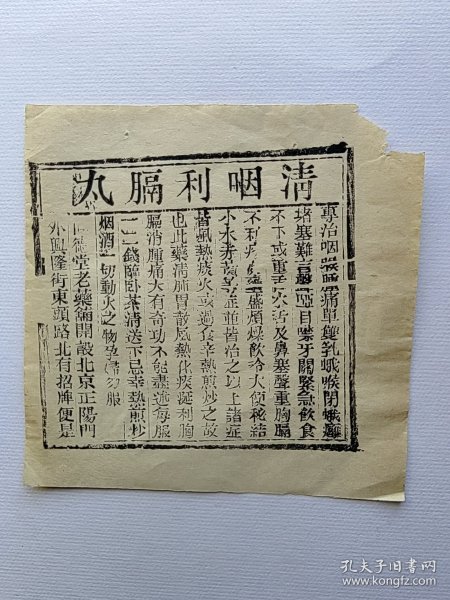 清咽利膈丸
專治咽喉腫痛單雙乳蛾喉閉蛾癰
堵塞難言聲啞目噤牙關緊急飲食
不下或重舌木舌及鼻塞聲重胸膈
不利痰盛煩燥飲冷大便秘結
小水赤黃並皆治之以上諸症
皆風熱痰火或過食辛熱煎炒之故
也此藥清肺胃散風熱化痰涎利胸
膈消腫痛大有奇功不能盡述每服
一二錢臨臥茶清送下忌辛熱煎炒
烟酒一切動火之物孕婦勿服
堂老藥鋪開設北京正陽門
外興隆街東頭路北有招牌便是
孔夫子旧书网
www.kongfz.com